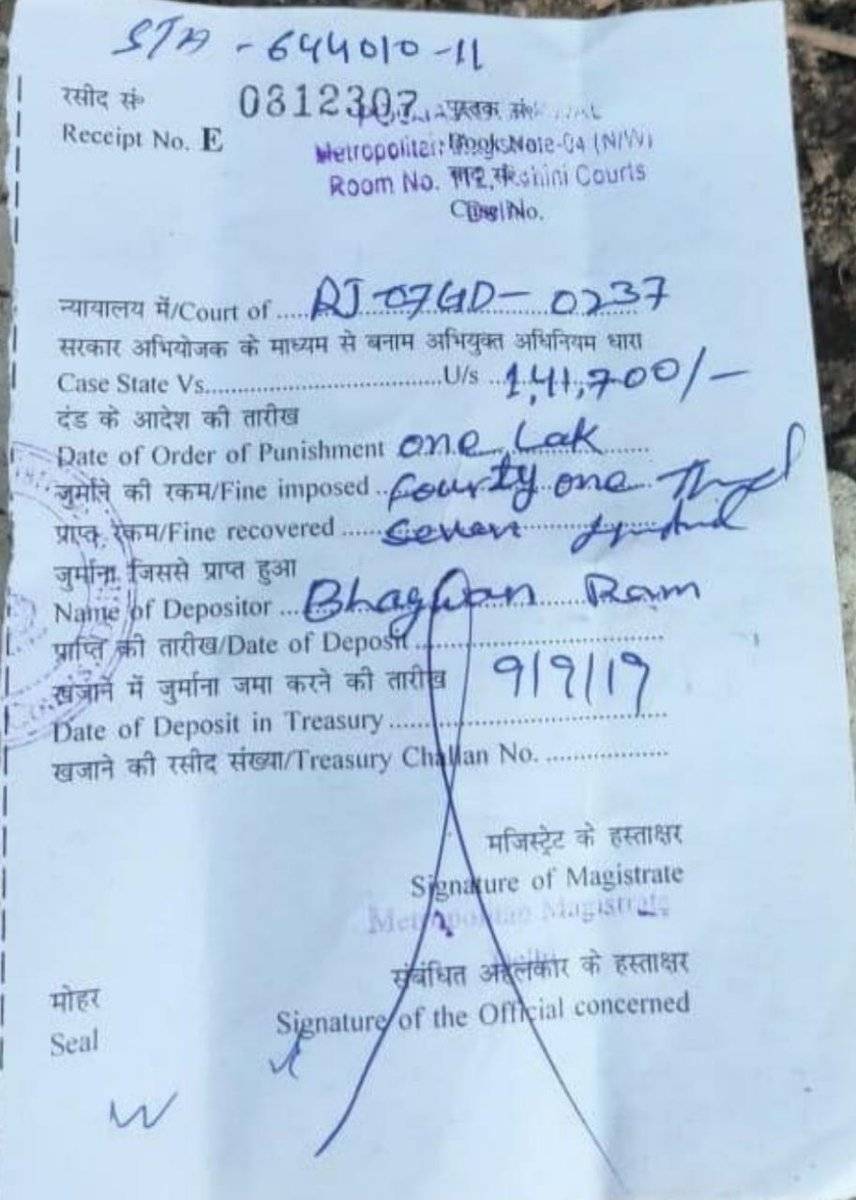 STA - 644010-11
रसीद सं० 0312307 पुस्तक सं०
Receipt No. E
Metropolitan
Room No. Rohini Courts
No.
न्यायालय में/Court of ..... RJ-07GD-0237
सरकार अभियोजक के माध्यम से बनाम अभियुक्त अधिनियम धारा
Case State Vs.................................U/s ...1,41,700/-
दंड के आदेश की तारीख
Date of Order of Punishment one Lak
जुर्माने की रकम/Fine imposed ..fourty one
प्राप्त रकम/Fine recovered ...... seven
जुर्माना जिससे प्राप्त हुआ
Name of Depositor ...Bhagwan Ram
प्राप्ति की तारीख/Date of Deposit ....................................
खजाने में जुर्माना जमा करने की तारीख 9/9/19
Date of Deposit in Treasury........................................
खजाने की रसीद संख्या/Treasury Challan No. ..................
मजिस्ट्रेट के हस्ताक्षर
Signature of Magistrate
Metropolitan Magistrate
संबंधित अहलकार के हस्ताक्षर
मोहर
Signature of the Official concerned
Seal